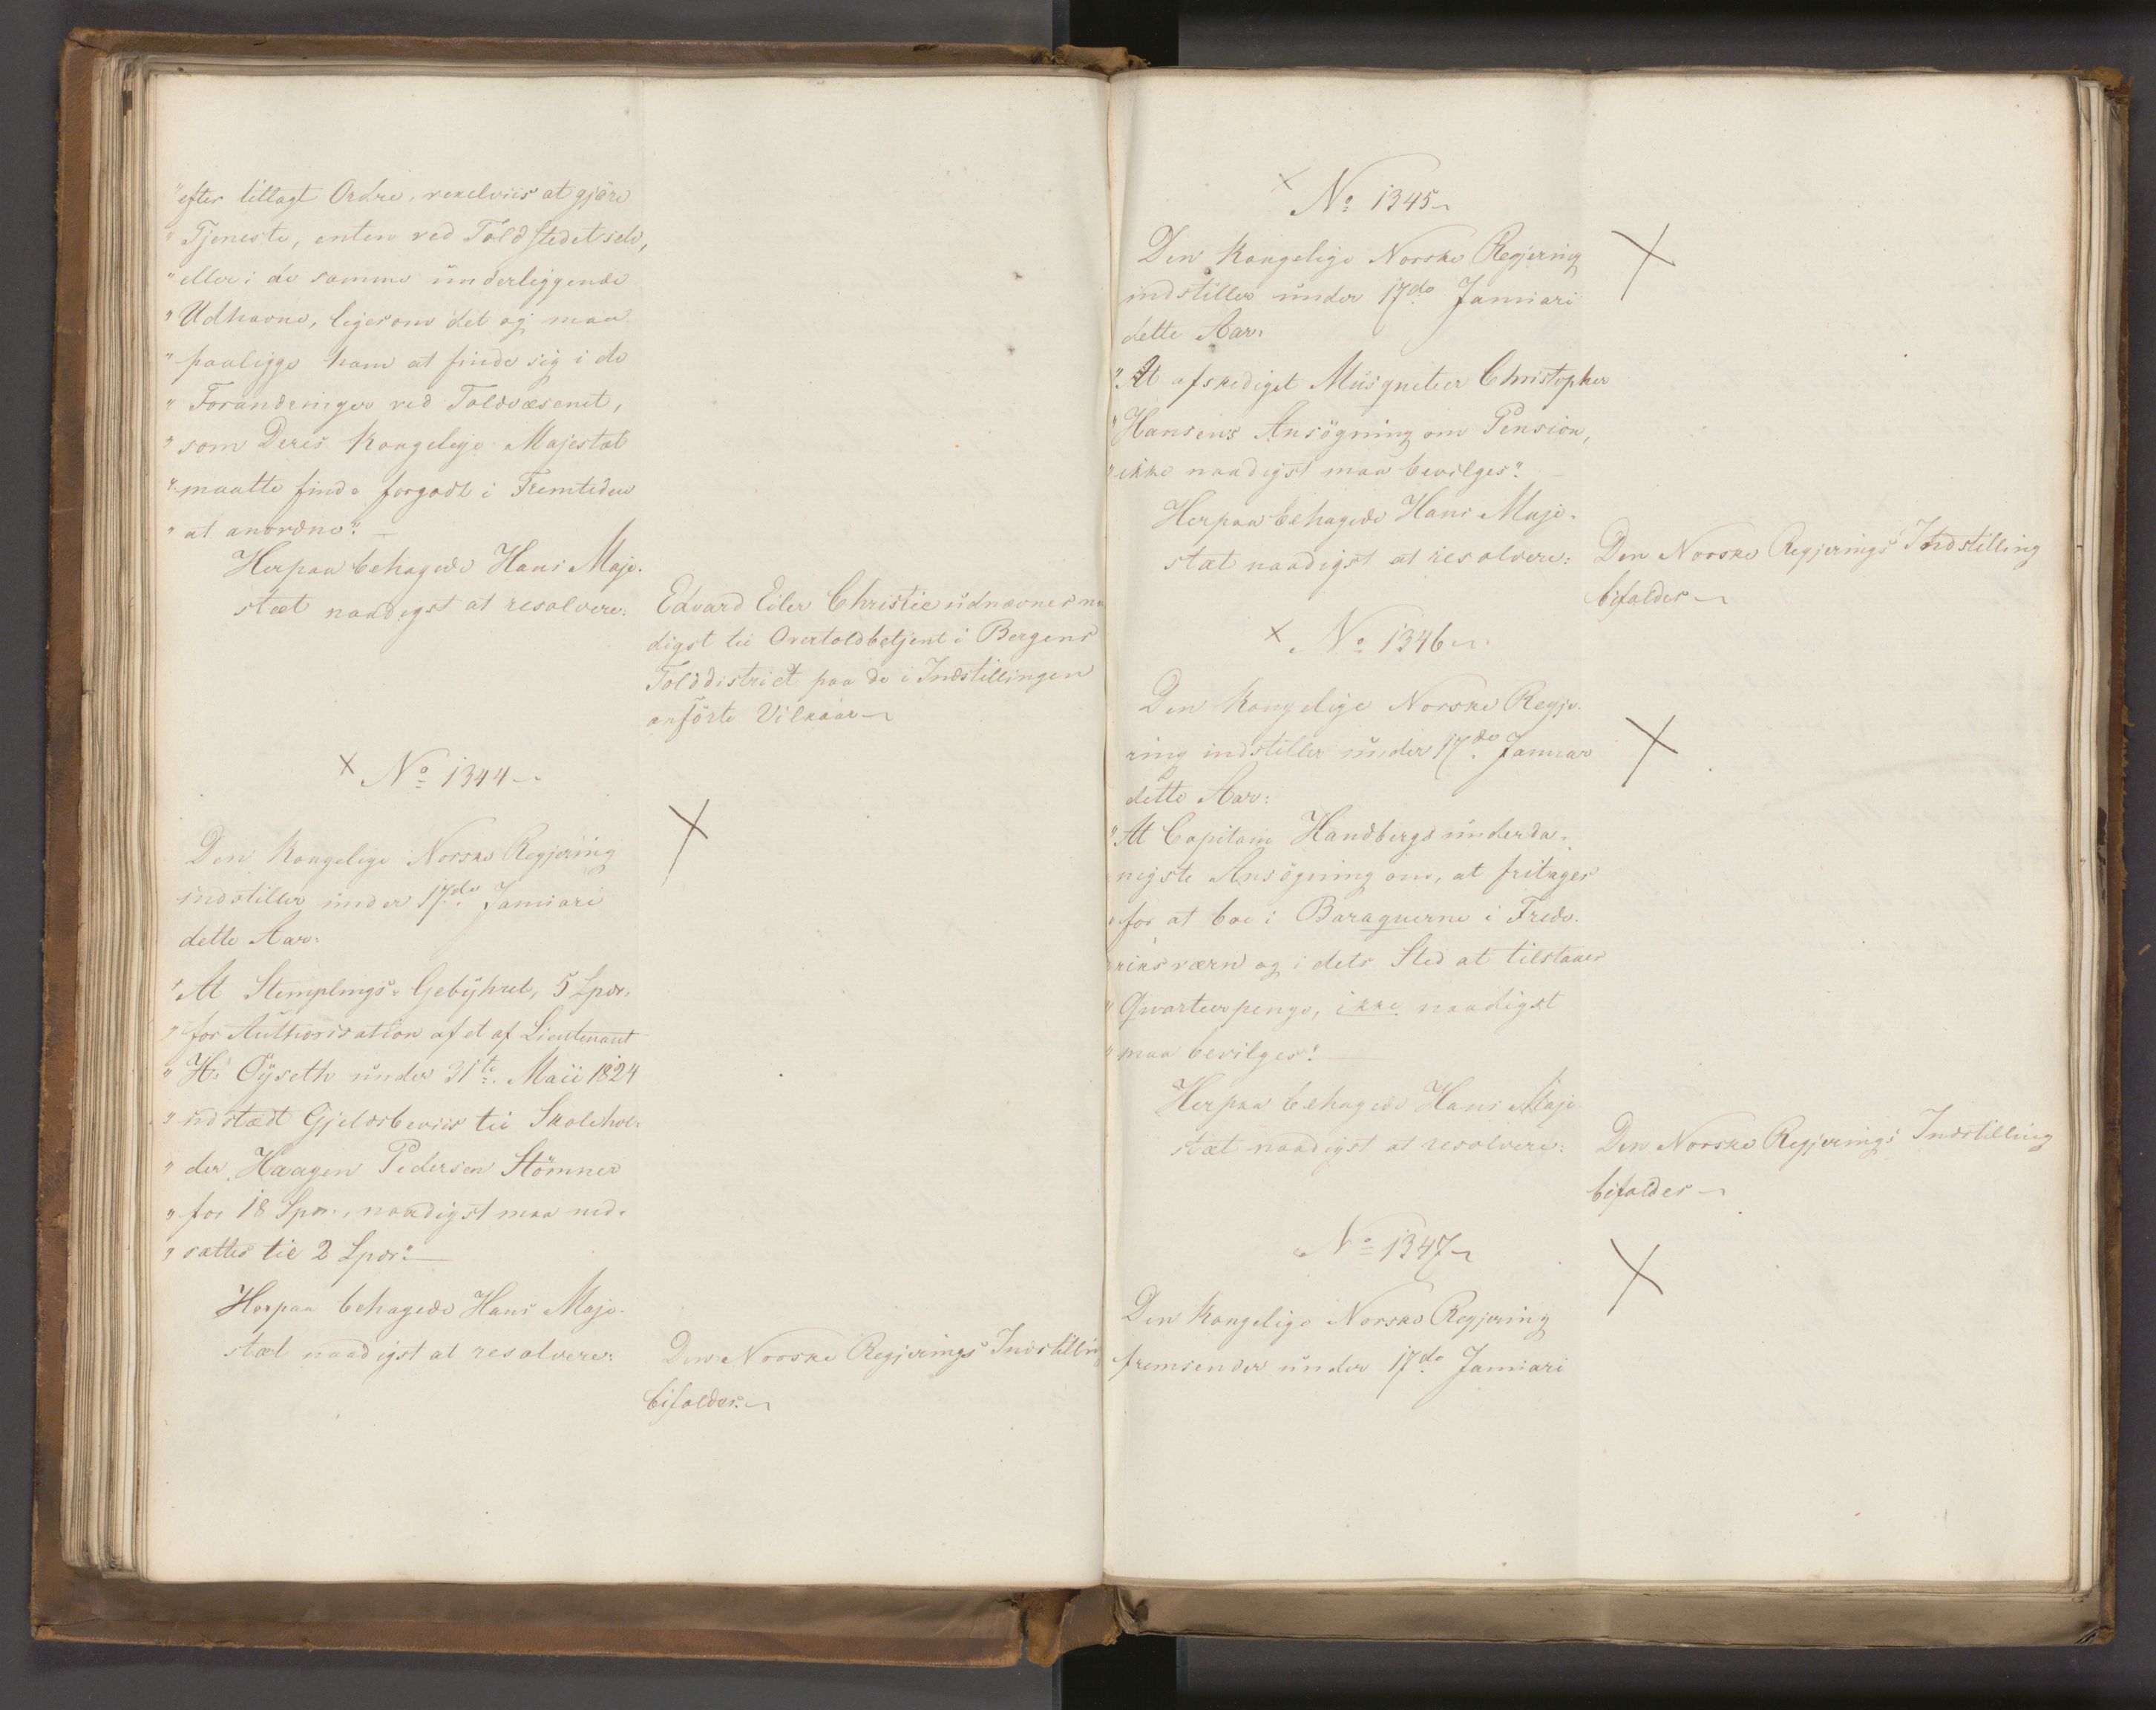 "efter tillagt Ordre, vexelviis at gjøre
"Tjeneste, enten ved Toldstedet selv,
"eller i de samme underliggende
"Udhavne, ligesom det og maa
"paaligge ham at finde sig i de
"Forandringer ved Toldvæsenet,
"som Deres Kongelige Majestæt
"maatte finde forgodt i Fremtiden
"at anordne". —
Herpaa behagede Hans Maje-
stæt naadigst at resolvere:
Edvard Eiler Christie udnævnes naa
digst til Overtoldbetjent i Bergens
Tolddistrict paa de i Indstillingen
anførte Vilkaar
× No 1344
×
Den Kongelige Norske Regjering
indstiller under 17de Januari
dette Aar:
"At Stemplings-Gebyhret, 5 Spdr.
"for Authorisation af et af Lieutenant
"H: Öyseth under 31te Maii 1824
"udstædt Gjeldsbeviis til Skolehol-
"der Haagen Pedersen Stömner
"for 18 Spdr., naadigst maa ned-
"sættes til 2 Spdr." —
Herpaa behagede Hans Maje-
stæt naadigst at resolvere:
Den Norske Regjerings Indstilling
bifaldes.
× No 1345
×
Den Kongelige Norske Regjering
indstiller under 17de Januari
dette Aar:
"At afskediget Musqueteer Christopher
"Hansens Ansögning om Pension,
"ikke naadigst maa bevilges". —
Herpaa behagede Hans Maje-
stæt naadigst at resolvere:
Den Norske Regjerings Indstilling
bifaldes
× No 1346
×
Den Kongelige Norske Regje-
ring indstiller under 17de Januar
dette Aar:
"At Capitain Handbergs underda-
"nigste Ansögning om, at fritages
"for at boe i Baraquerne i Frede-
"riksværn og i dets Sted at tilstaaes
"Qvarteerpenge, ikke naadigst
"maa bevilges". —
Herpaa behagede Hans Maje-
stæt naadigst at resolvere:
Den Norske Regjerings Indstilling
bifaldes
No 1347
×
Den Kongelige Norske Regjering
fremsender under 17de Januari